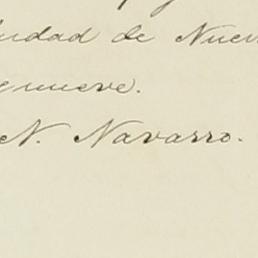 ciudad de Nuev
enueve.
N. Navarro.